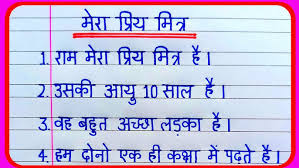 मेरा प्रिय मित्र
1. राम मेरा प्रिय मित्र है।
2. उसकी आयु 10 साल है।
3. वह बहुत अच्छा लड़का है।
4. हम दोनो एक ही कक्षा में पढ़ते है।